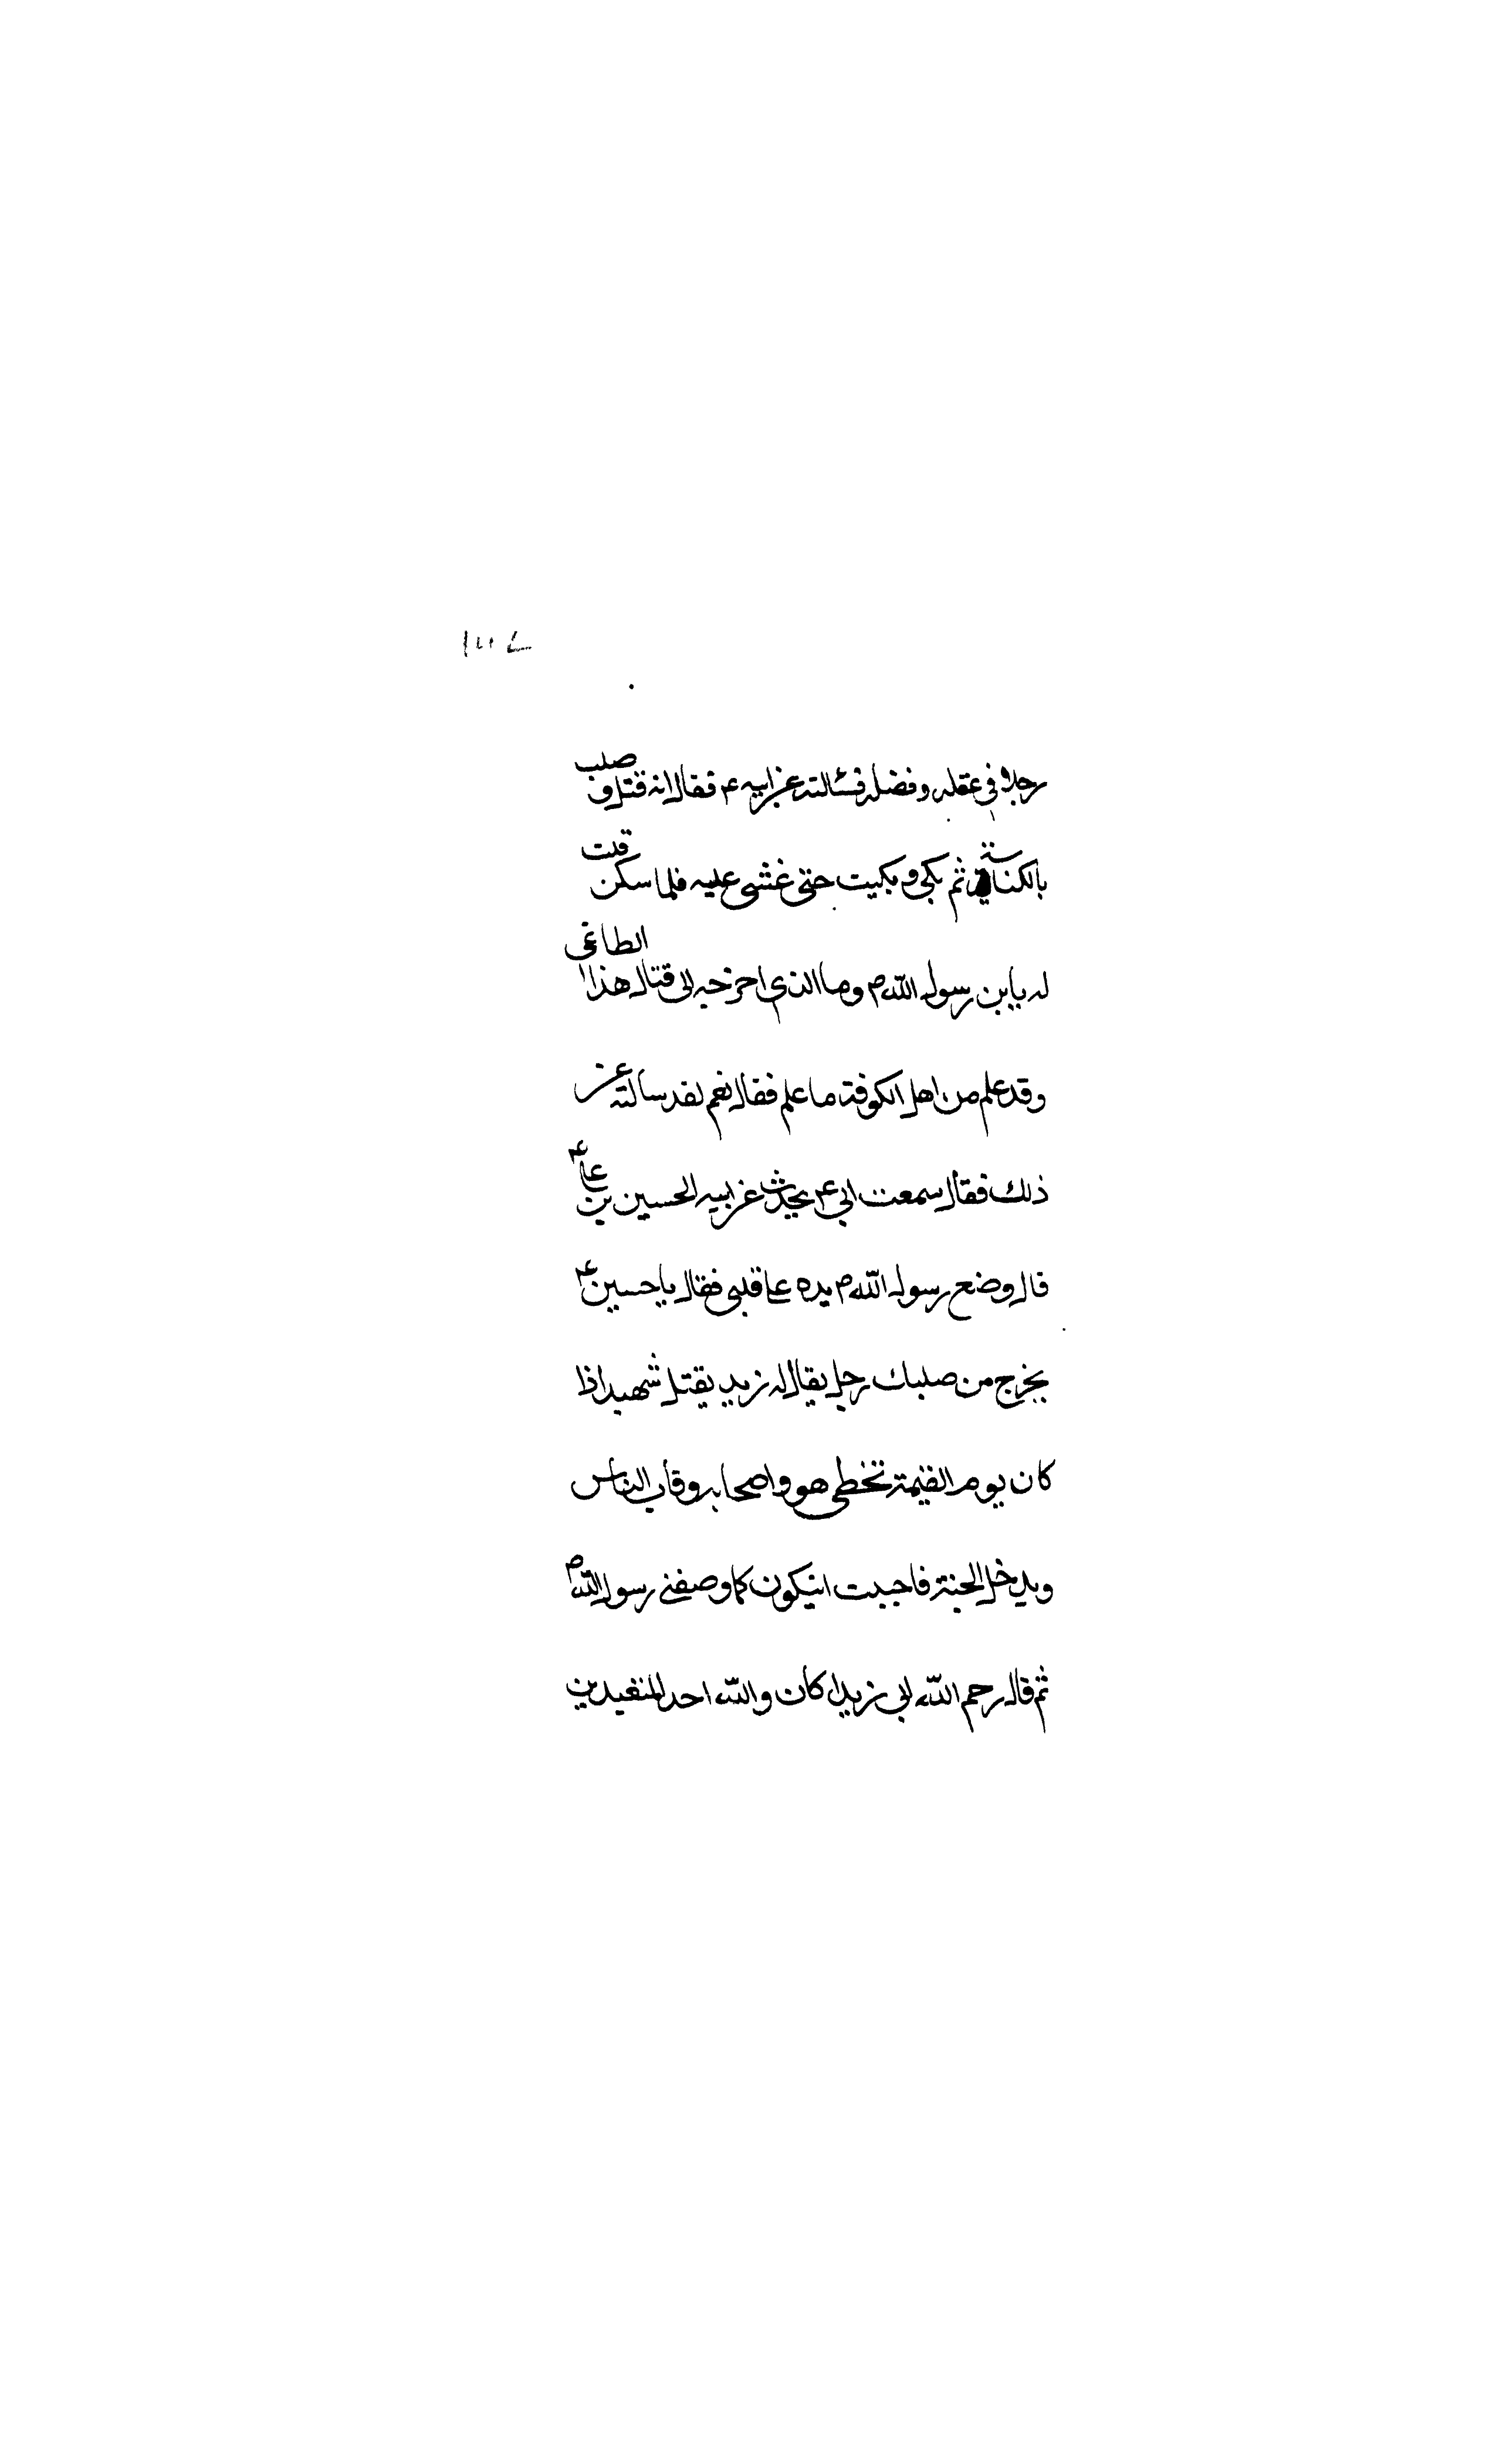 رجلا في عقله وفضله فسئالته عن ابيه ع فقال انه قتل و صلب
بالكناسة ثم بكى و بكيت حتى غشى عليه فلما سكن قلت
له يابن رسول الله ص وما الذى اخرجه الى قتال هذا الطاغى
وقد علم من اهل الكوفة ما علم فقال نعم لقد سالته عن
ذلك فقال سمعت ابى ع يحدث عن ابيه الحسين بن على ع
قال وضع رسول الله ص يده على قلبى فقال يا حسين ع
يخرج من صلبك رجل يقال له زيد يقتل شهيدا اذا
كان يوم القيمة تخطى هو واصحابه رقاب الناس
ويدخل الجنة فاحببت ان يكون كما وصفنى رسول الله ص
ثم قال رحم الله ابى زيدا كان والله احد المتعبدين